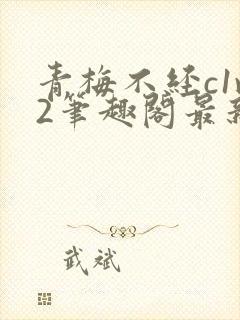 青梅不经c1v
2笔趣阁最新
武斌